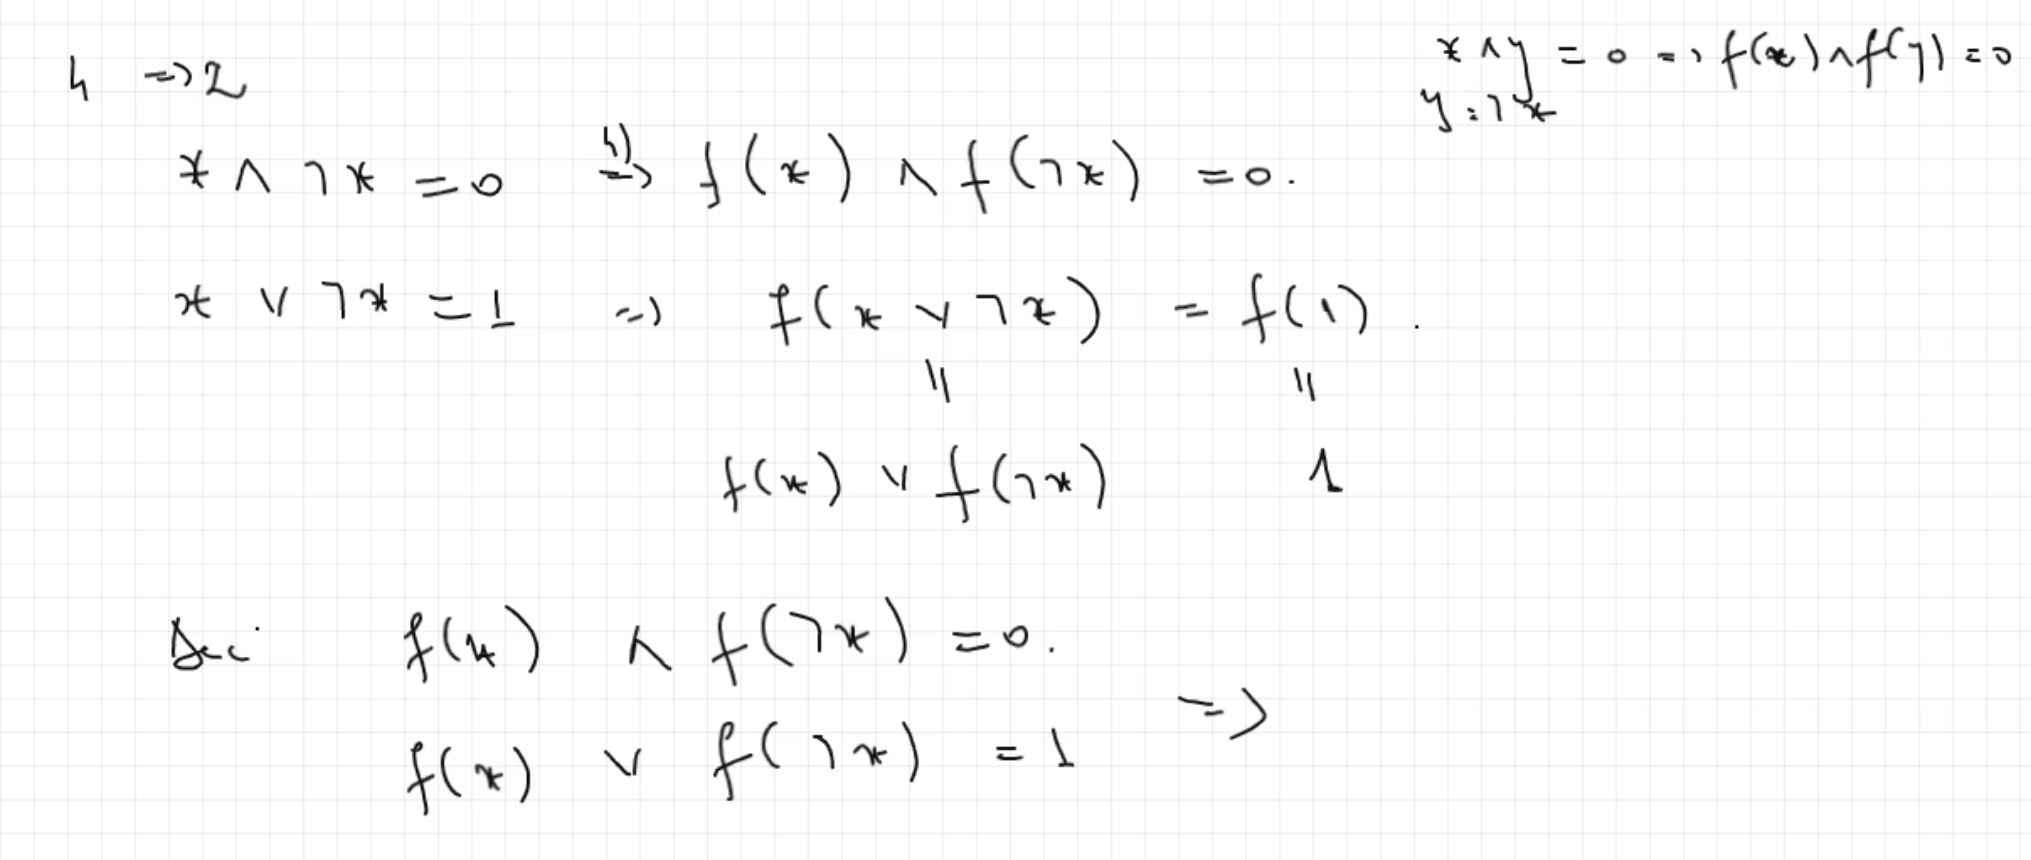 x ∧ y = 0 => f(x) ∧ f(y) = 0
y = ¬x
4 => 2
x ∧ ¬x = 0 4) => f(x) ∧ f(¬x) = 0.
x ∨ ¬x = 1 => f(x ∨ ¬x) = f(1).
|| ||
f(x) ∨ f(¬x) 1
Deci f(x) ∧ f(¬x) = 0.
=>
f(x) ∨ f(¬x) = 1